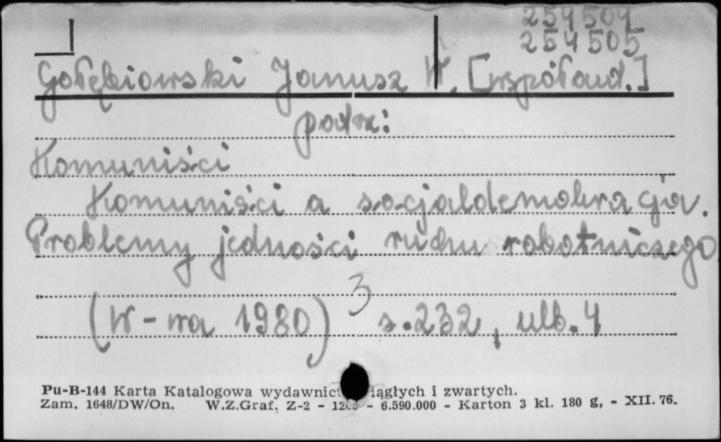 254504
254505
Gołębiowski Janusz W. [współaut.]
patrz:
Komuniści
Komuniści a socjaldemokracja.
Problemy jedności ruchu robotniczego
3
(W-wa 1980) s. 232, ulb. 4
Pu-B-144 Karta Katalogowa wydawnict ciągłych i zwartych.
Zam. 1648/DW/On. W.Z.Graf. Z-2 - - 6.590.000 - Karton 3 kl. 180 g, - XII. 76.